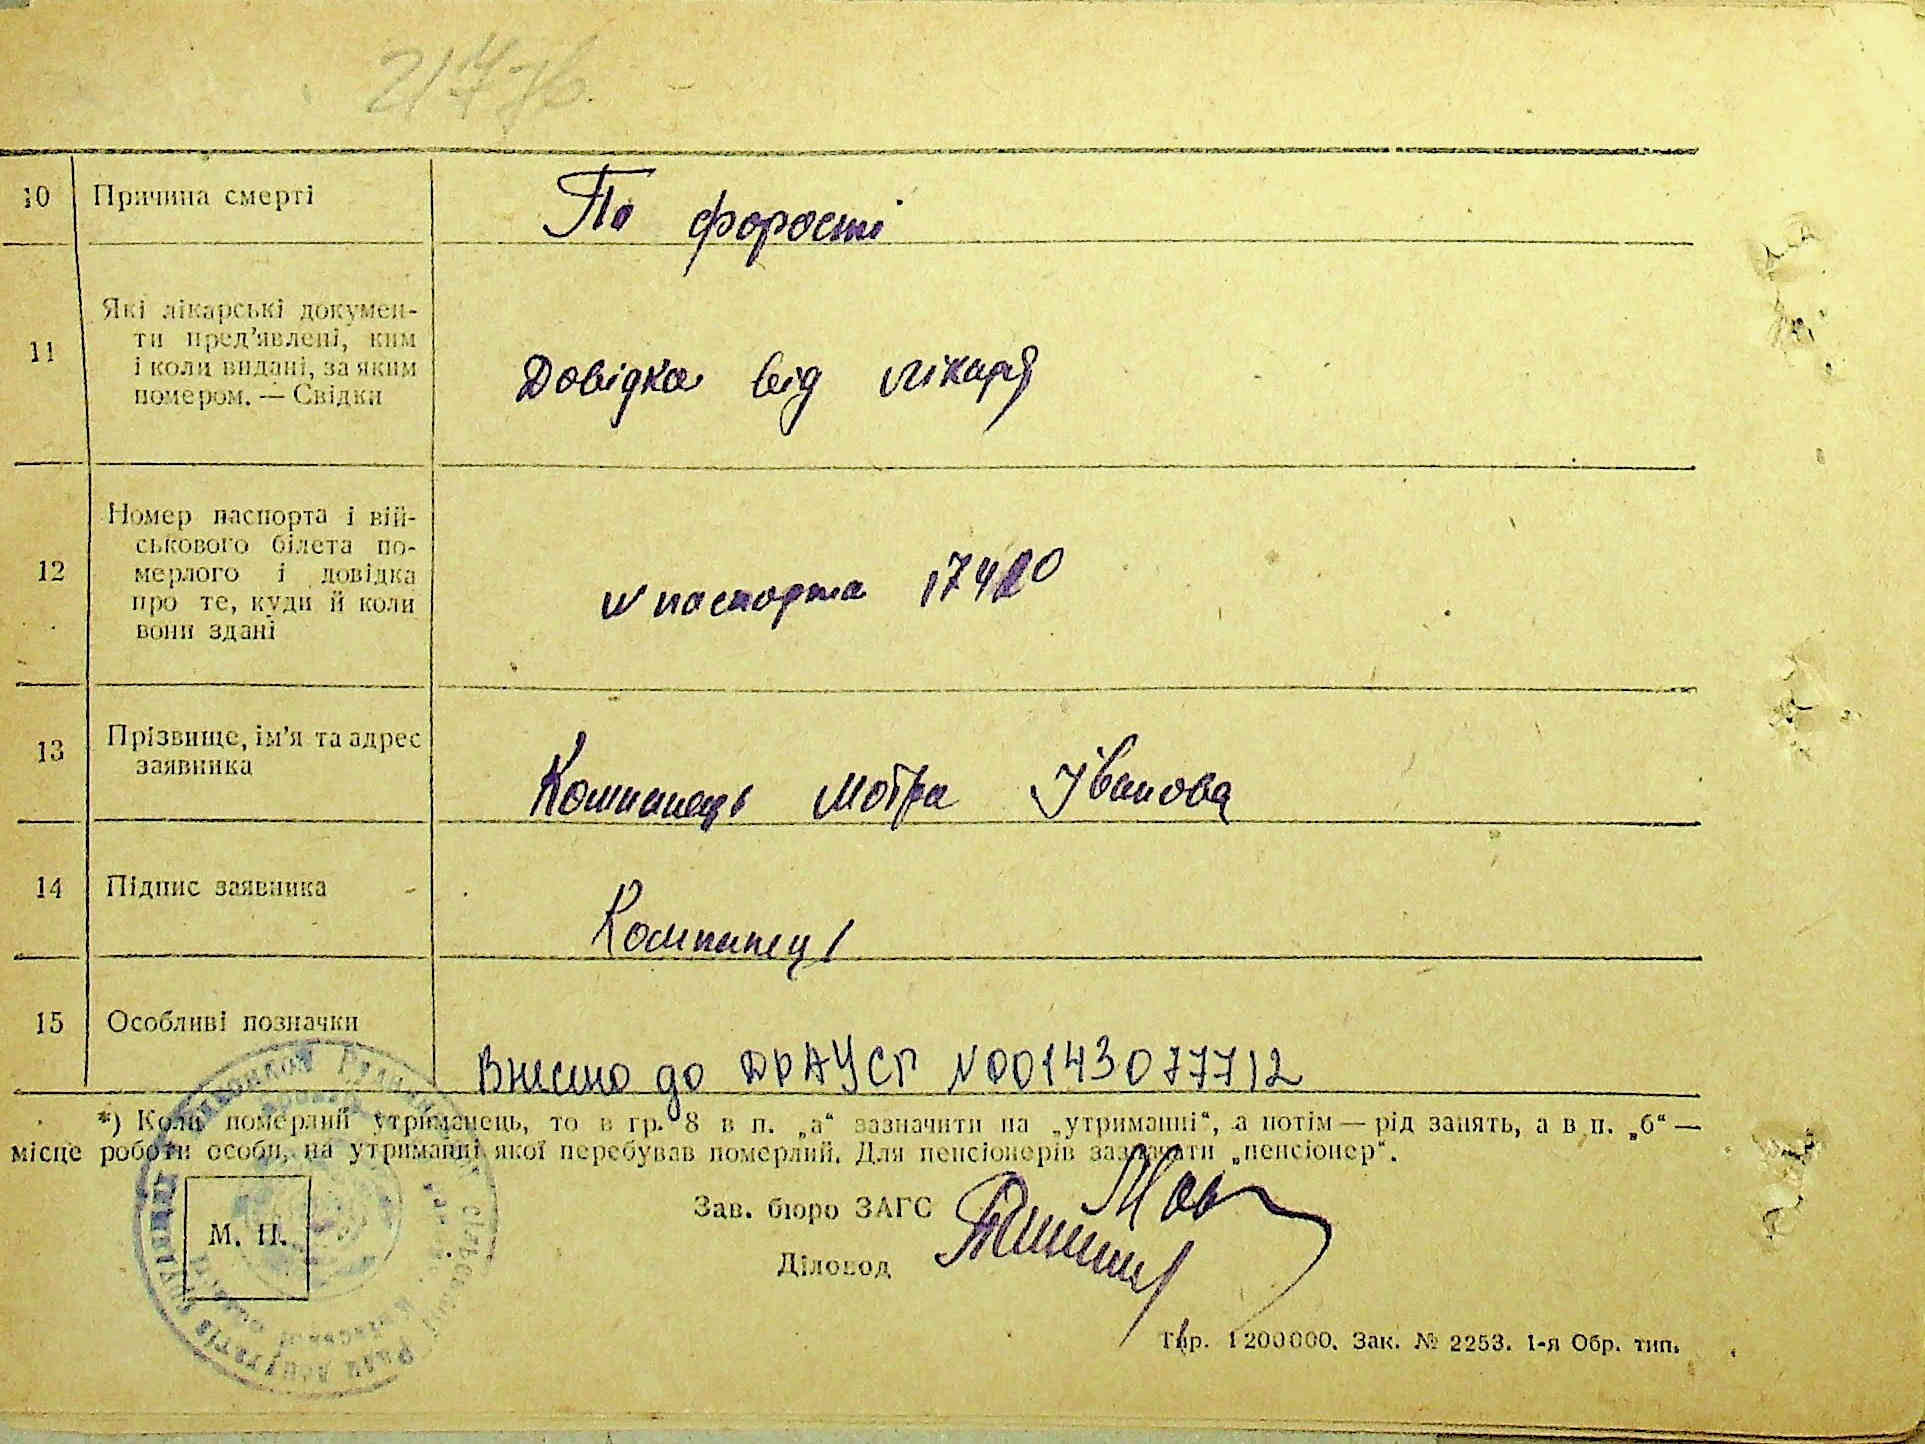 21476.
10 Причина смерті По форості
11 Які лікарські докумен-
ти пред'явлені, ким
і коли видані, за яким
номером. — Свідки
Довідка від лікаря
12 Номер паспорта і вій-
ськового білета по-
мерлого і довідка
про те, куди й коли
вони здані
N паспорта 17420
13 Прізвище, ім'я та адрес
заявника
Компанець Мотра Іванова
14 Підпис заявника Компанець
15 Особливі позначки
Внесено до ДРАЦСГ N00143077712
*) Коли померлий утриманець, то в гр. 8 в п. „а“ зазначити на „утриманні“, а потім — рід занять, а в п. „б“ —
місце роботи особи, на утриманні якої перебував померлий. Для пенсіонерів зазначати „пенсіонер“.
Зав. бюро ЗАГС
М. П.
Діловод
Тир. 1200000. Зак. № 2253. 1-я Обр. тип.